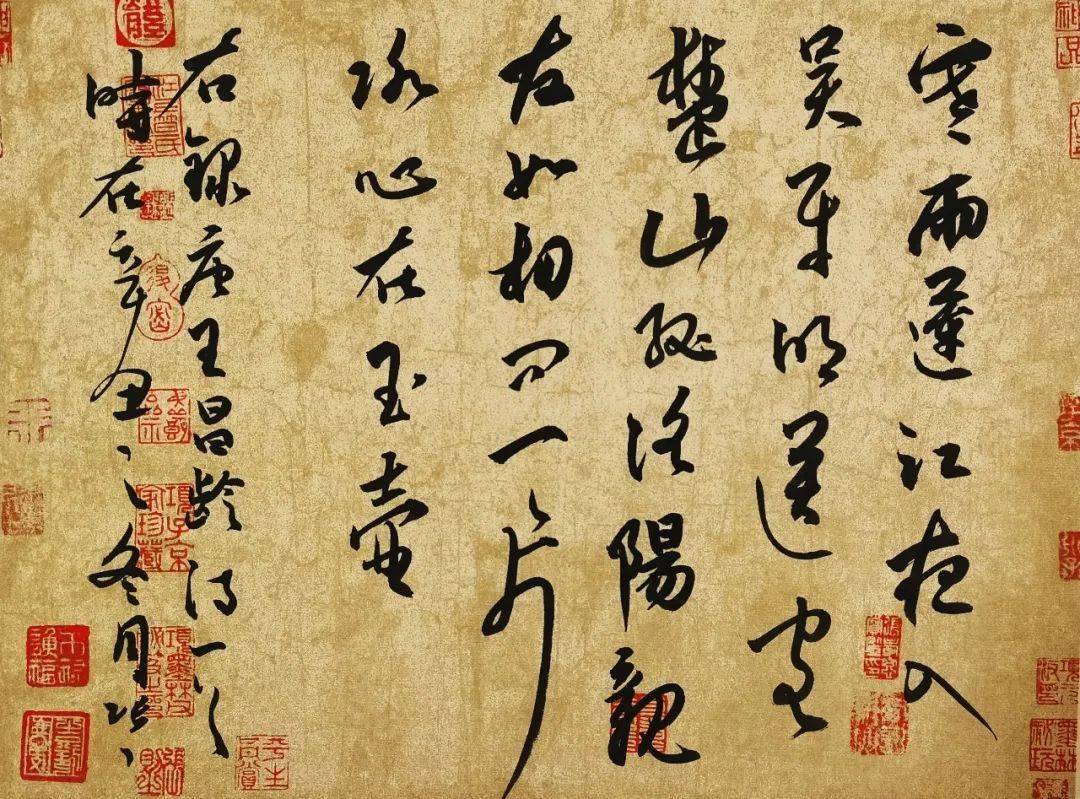 寒雨蓮江夜入
吳平明送客
楚山孤洛陽親
友如相問一片
冰心在玉壺
右錄唐王昌齡詩一首
時在辛丑之冬月
項子京家珍藏